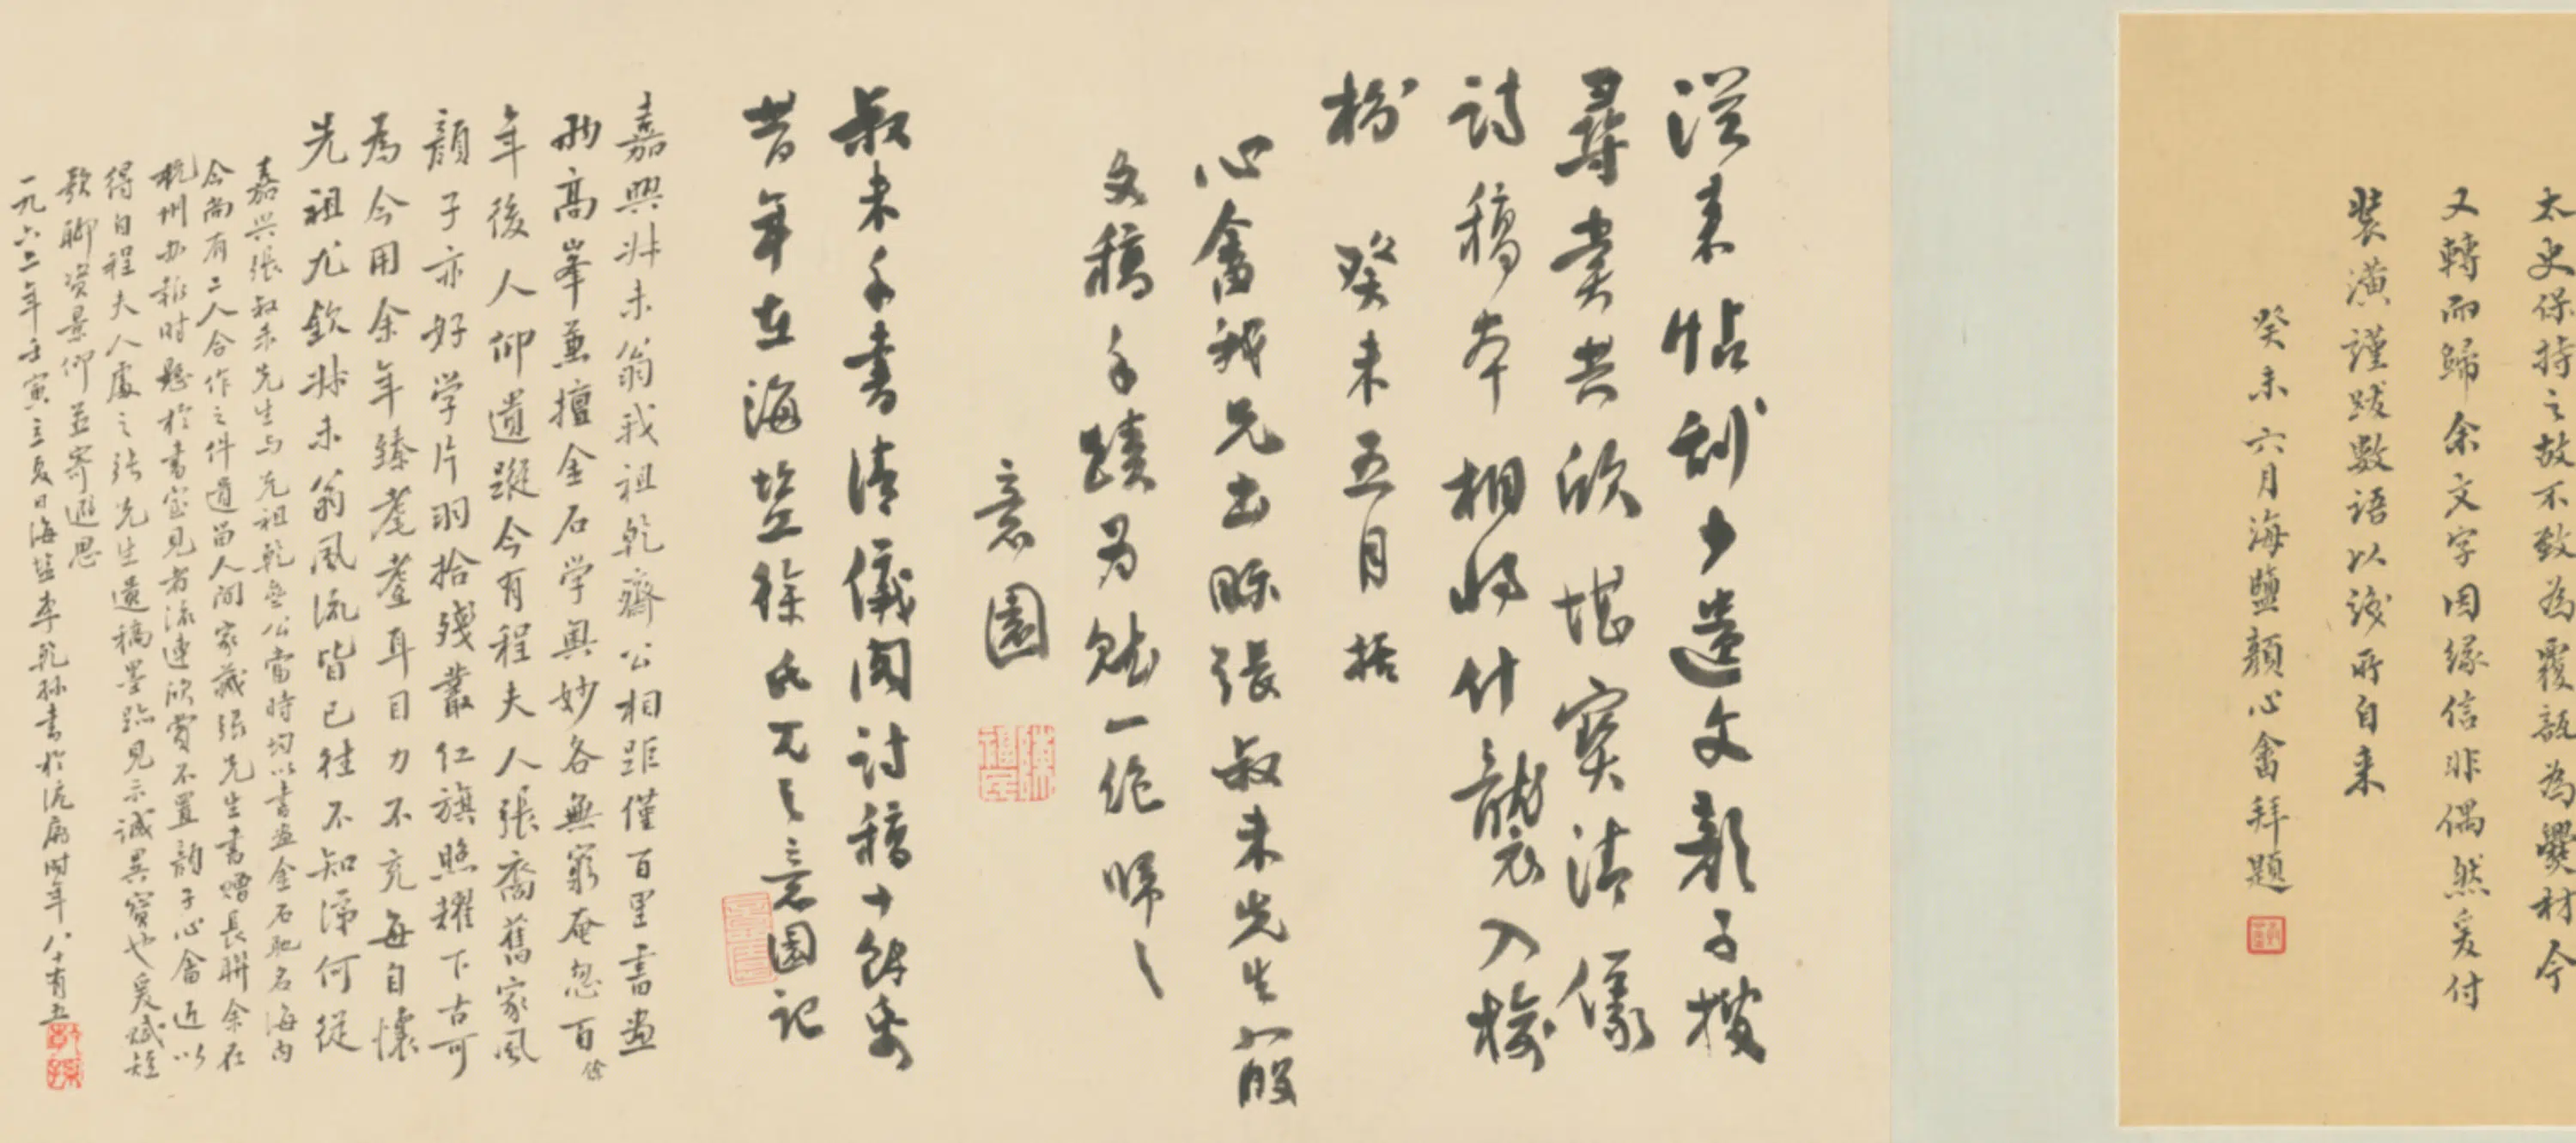 太史保持之故不致為覆瓿為爨材今
又轉而歸余文字因緣信非偶然爰付
裝潢謹跋數語以識所自来
癸未六月海鹽顏心畬拜題
從来帖刻少遺文顏子搜
尋賞共欣堪寶清儀
詩稿本相將什襲入楡
枌 癸未五月 括
心畬我兄出眎張叔未先生八股
文稿手蹟為賦一絕
意園
叔未手書清儀閣詩稿十餘
昔年在海鹽徐氏 意園記
嘉興叔未翁我祖乾齋公相距僅百里書畫
兩高峯兼擅金石学奥妙各無窮奄忽百餘
年後人仰遺蹤今有程夫人張裔舊家風
顏子亦好学片羽拾殘叢仁旗照耀下古可
為今用余年臻耄耋耳目力不充每自懷
先祖尤欽叔未翁風流皆已往不知濘何從
嘉兴張叔未先生与先祖乾 公當時均以書畫金石馳名海内
今尚有二人合作之件遺留人间家藏張先生書赠長聯余在
杭州办 时懸於書室見者流連欣賞不置韵子心畬近以
得自程夫人處之张先生遺稿墨跡見示诚異寶也爰赋短
歌聊资景仰並寄遐思
一九六二年壬寅立夏日海盐李乾孫書於沪寓时年八十有五